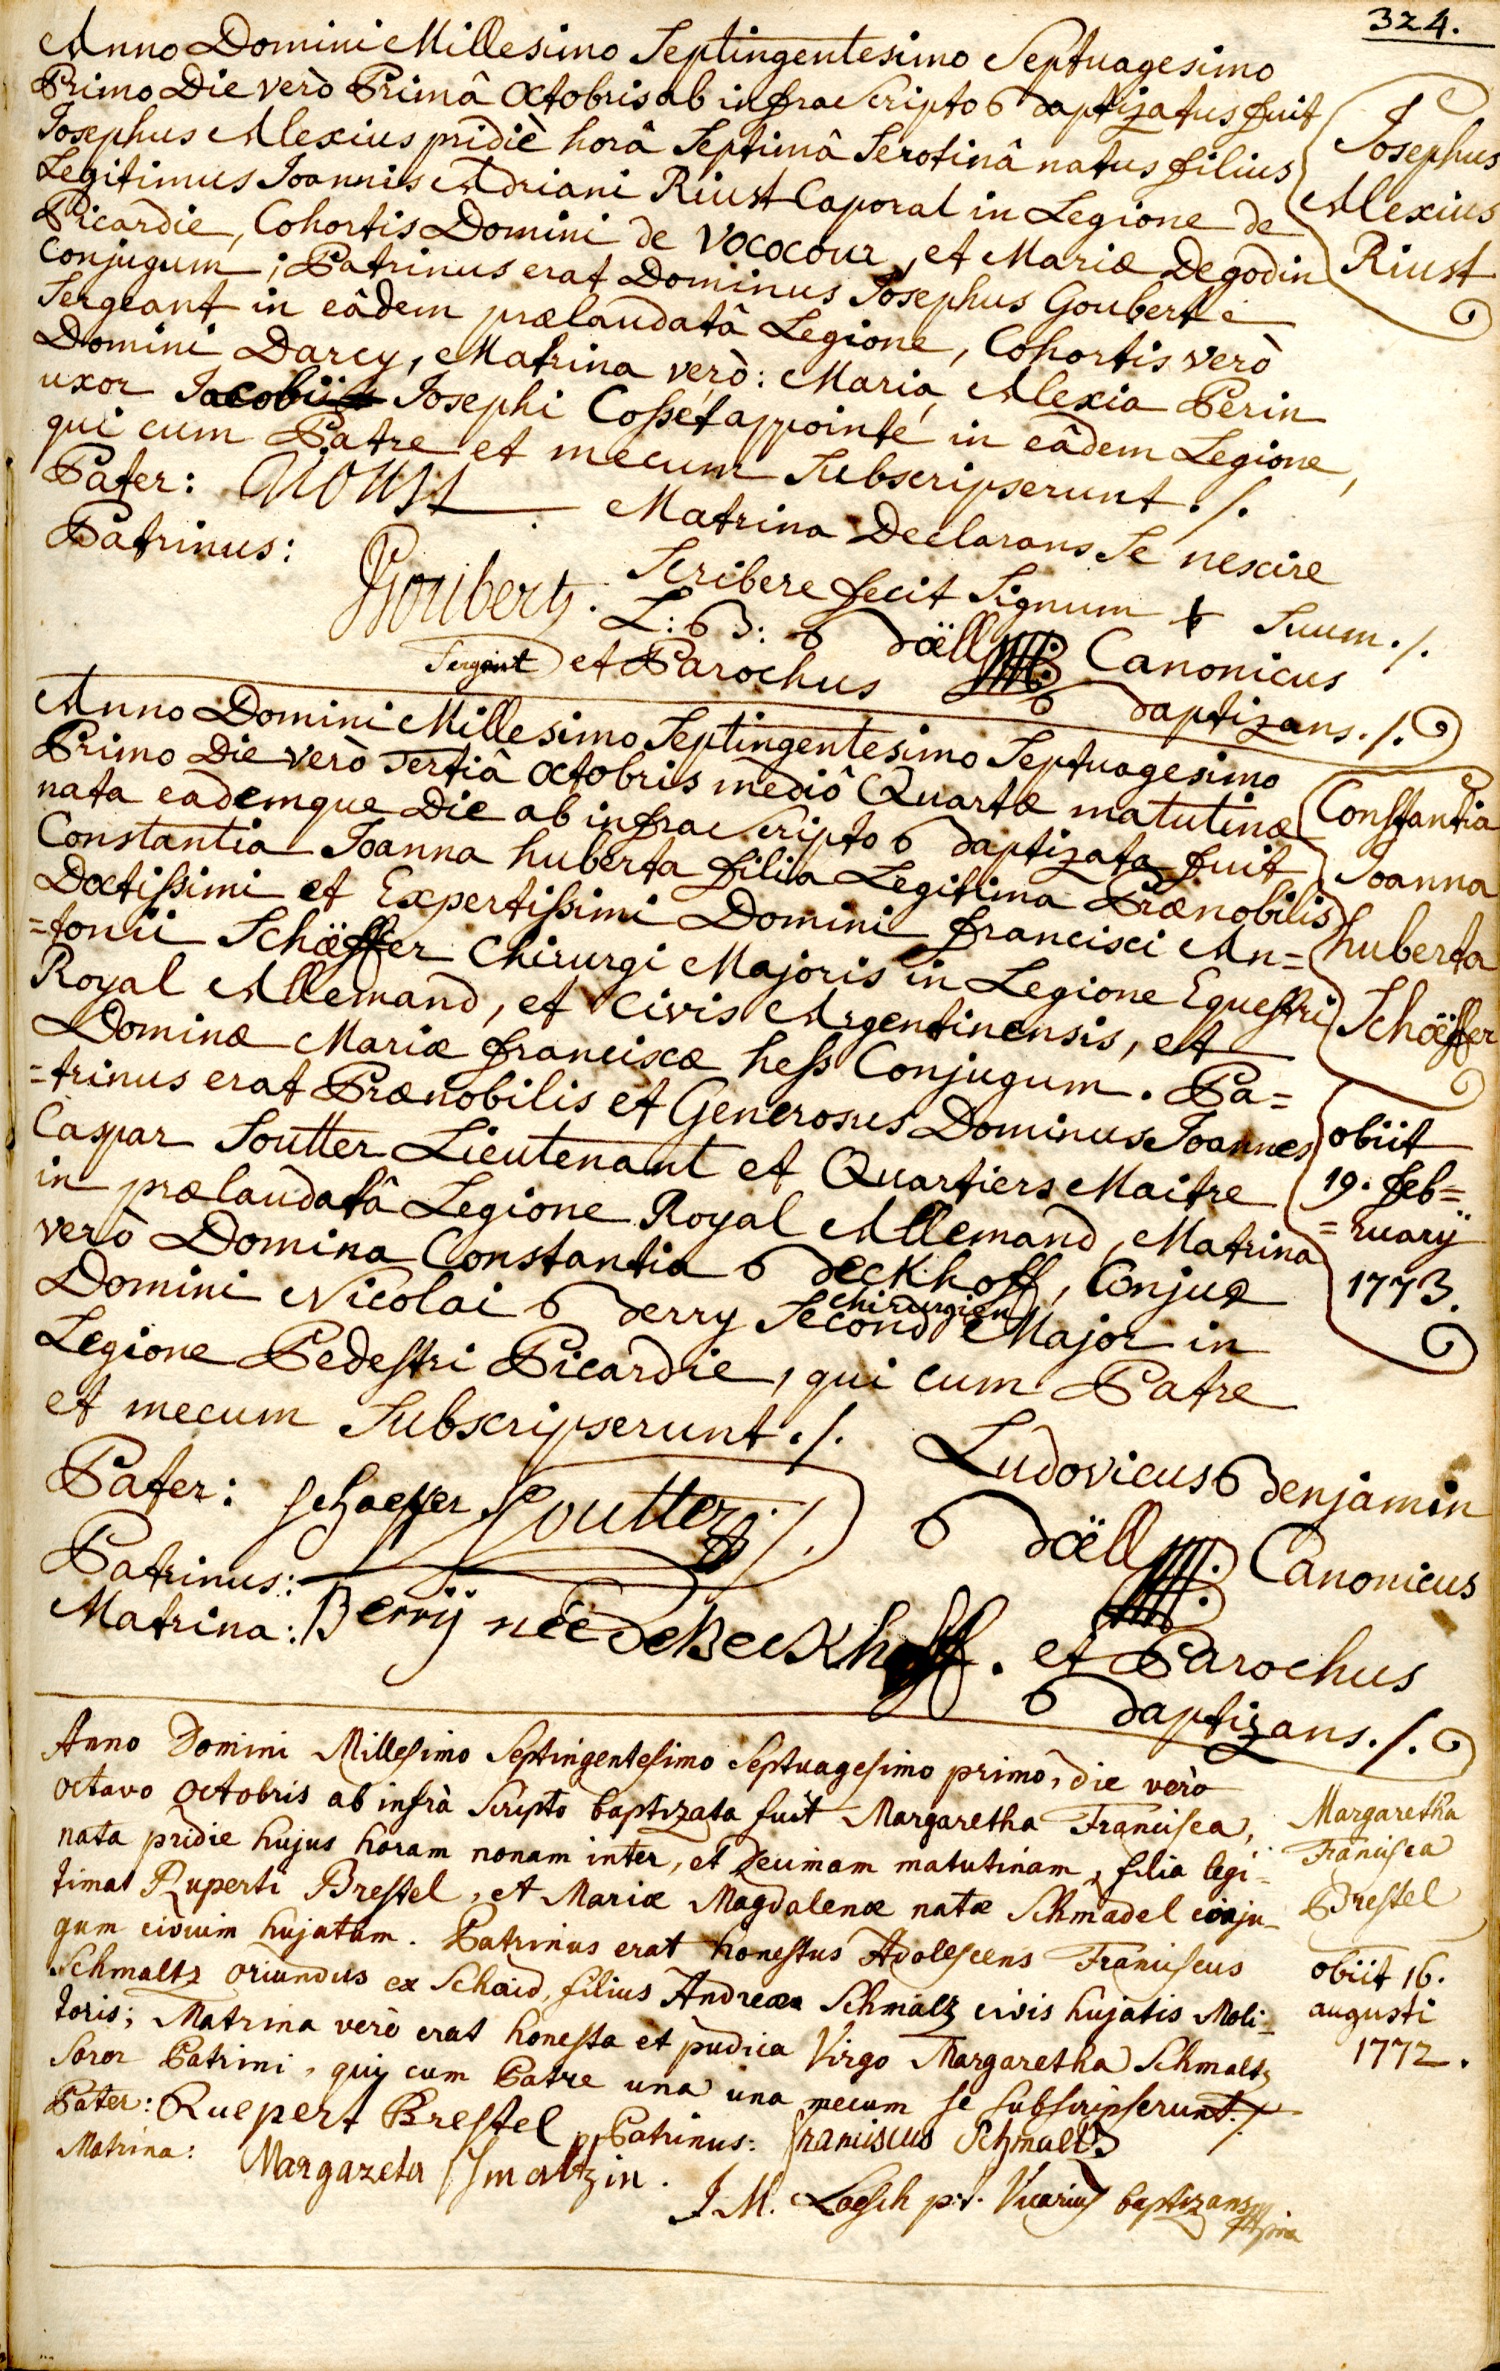 324.
Anno Domini Millesimo Septingentesimo Septuagesimo
Primo Die verò Primâ Octobris ab infrascripto Baptizatus fuit
Josephus Alexius pridiè horâ Septimâ Serotinâ natus filius
Legitimus Joannis Adriani Riust Caporal in Legione de
Picardie, Cohortis Domini de Vococour, et Mariæ Degodin
Conjugum; Patrinus erat Dominus Josephus Goubert è
Sergeant in eâdem prælaudatâ Legione, Cohortis verò
Domini Darcy, Matrina verò: Maria Alexia Perin
uxor Jacobi Josephi Cosset appointé in eâdem Legione,
qui cum Patre et mecum Subscripserunt ./.
Josephus
Alexius
Riust
Pater:
Matrina Declarans Se nescire
Scribere fecit Signum + Suum ./.
Patrinus: Goubert.
Sergent
L: B: Böell Canonicus
et Parochus Baptizans ./.
Anno Domini Millesimo Septingentesimo Septuagesimo
Primo Die verò Tertiâ Octobris mediô Quartæ matutinæ
nata eademque Die ab infrascripto Baptizata fuit
Constantia Joanna huberta filia Legitima Prænobilis
Doctissimi et Expertissimi Domini francisci An=
=tonii Schäffer Chirurgi Majoris in Legione Equestri
Royal Allemand, et Civis Argentinensis, et
Dominæ Mariæ franciscæ hess Conjugum. Pa=
=trinus erat Prænobilis et Generosus Dominus Joannes
Caspar Soutter Lieutenant et Quartiers Maitre
in prælaudatâ Legione Royal Allemand, Matrina
verò Domina Constantia Beckhoff, Conjux
Domini Nicolai Berry Second chirurgien Major in
Legione Pedestri Picardie, qui cum Patre
et mecum Subscripserunt ./.
Constantia
Joanna
huberta
Schöffer
obiit
19. feb=
=ruarÿ
1773.
Pater: Schaeffer
Patrinus: Soutter
Matrina: Berrÿ née de Beckhoff.
Ludovicus Benjamin
Böell Canonicus
et Parochus
Baptizans ./.
Anno Domini Millesimo Septingentesimo Septuagesimo primo, die verò
octavo octobris ab infrà scripto baptizata fuit Margaretha Francisca,
nata pridie hujus horam nonam inter, et decimam matutinam, filia legi=
tima Ruperti Brestel, et Mariæ Magdalenæ natæ Schmadel conju=
gum civium hujatum. Patrinus erat honestus Adolescens Franciscus
Schmaltz oriundus ex Schaid, filius Andreæ Schmaltz civis hujatis Moli=
toris; Matrina verò erat honesta et pudica Virgo Margaretha Schmaltz
Soror Patrini, quÿ cum Patre una una mecum se subscripserunt ./.
Margaretha
Francisca
Brestel
obiit 16.
augusti
1772.
Pater: Ruepert Brestel Patrinus: Franciscus Schmaltz
Matrina: Margareta Smaltzin.
J. M. Loesch p.t. Vicarius baptizans